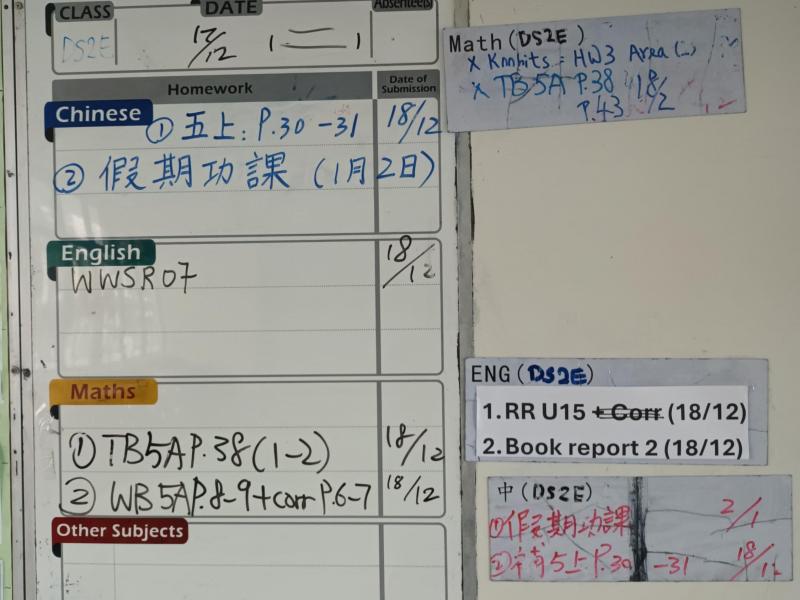 CLASS DATE Absentee(s)
DS2E 17/12
Homework Date of Submission
Chinese
① 五上: P.30 -31 18/12
② 假期功課 (1月2日)
English
WWSR07 18/12
Maths
① TB5A P.38 (1-2) 18/12
② WB 5A P.8-9 + corr P.6-7 18/12
Other Subjects
Math (DS2E)
x : HW3 Area
x TB 5A P.38 18/12
P.43
ENG (DS2E)
1.RR U15 +Corr (18/12)
2.Book report 2 (18/12)
中 (DS2E)
①假期功課 2/1
② 5上 P.30 -31 18/12